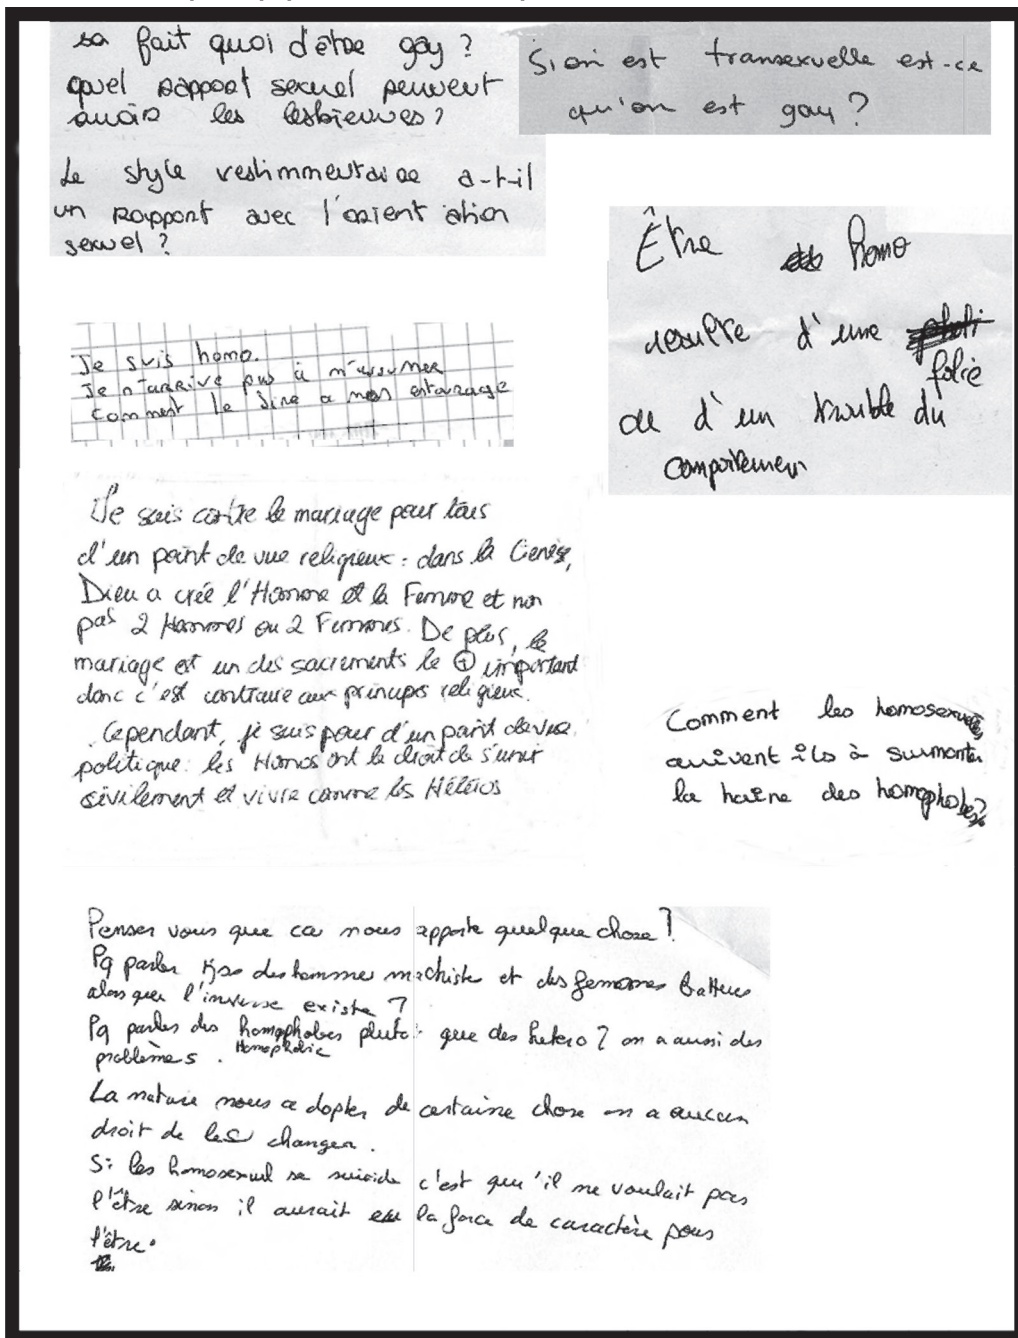 sa fait quoi d'être gay ?
quel rapport sexuel peuvent
avoir les lesbiennes ?
Le style vestimmentaire a-t-il
un rapport avec l'orient ation
sexuel ?
Si on est transexuelle est-ce
qu'on est gay ?
Être homo
résulte d'une
folie
ou d'un trouble du
comportement
Je suis homo.
Je n'arrive pas à m'assumer
Comment le dire a mon entourage
Je suis contre le mariage pour tous
d'un point de vue religieux : dans la Genèse,
Dieu a créé l'Homme et la Femme et non
pas 2 Hommes ou 2 Femmes. De plus, le
mariage est un des sacrements le + important
donc c'est contraire aux principes religieux.
Cependant, je suis pour d'un point de vue
politique : les Homos ont le droit de s'unir
civilement et vivre comme les Hétéros
Comment les homosexuels
arrivent ils à surmonter
la haine des homophobes ?
Penser vous que ca nous apporte quelque chose ?
Pq parler des homme machiste et des femmes battues
alors que l'inverse existe ?
Pq parler des homophobes plutot que des hetero ? on a aussi des
problèmes. Homophobie
La nature nous a dopter de certaine chose on a aucun
droit de les changer.
Si les homosexuel se suicide c'est qu'il ne voulait pas
l'être sinon il aurait eu la force de caractère pour
l'être.